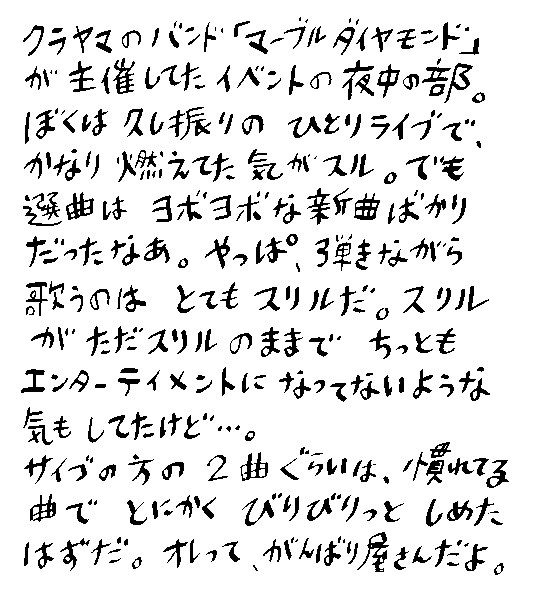 クラヤマのバンド「マーブルダイヤモンド」
が主催してたイベントの夜中の部。
ぼくは久し振りのひとりライブで、
かなり燃えてた気がスル。でも
選曲はヨボヨボな新曲ばかり
だったなあ。やっぱ、弾きながら
歌うのはとてもスリルだ。スリル
がただスリルのままでちっとも
エンターテイメントになってないような
気もしてたけど…。
サイゴの方の2曲ぐらいは、慣れてる
曲でとにかくびりびりっとしめた
はずだ。オレって、がんばり屋さんだよ。